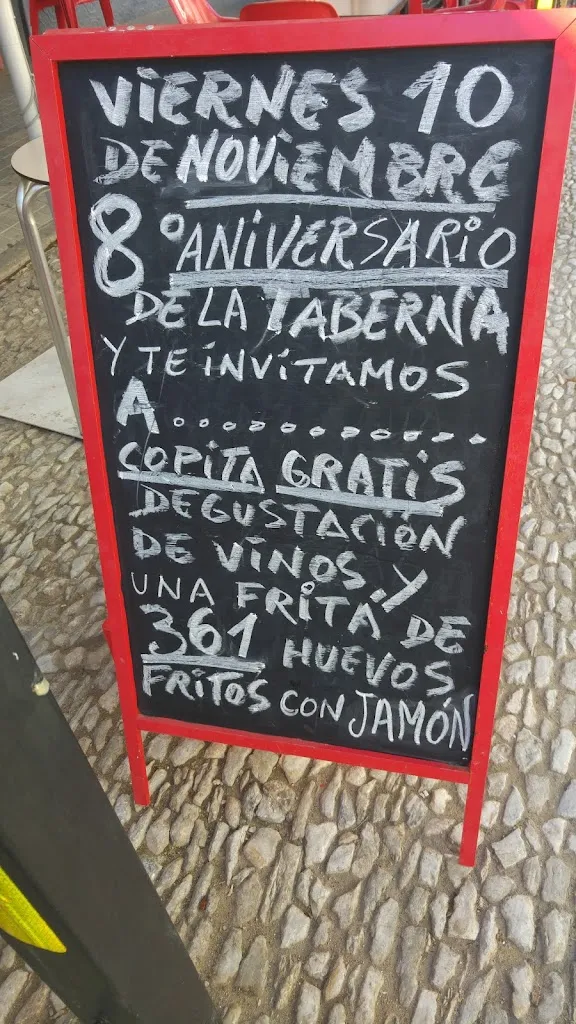 VIERNES 10
DE NOVIEMBRE
8º ANIVERSARIO
DE LA TABERNA
Y TE INVITAMOS
A............
COPITA GRATIS
DEGUSTACIÓN
DE VINOS, Y
UNA FRITÁ DE
361 HUEVOS
FRITOS CON JAMÓN